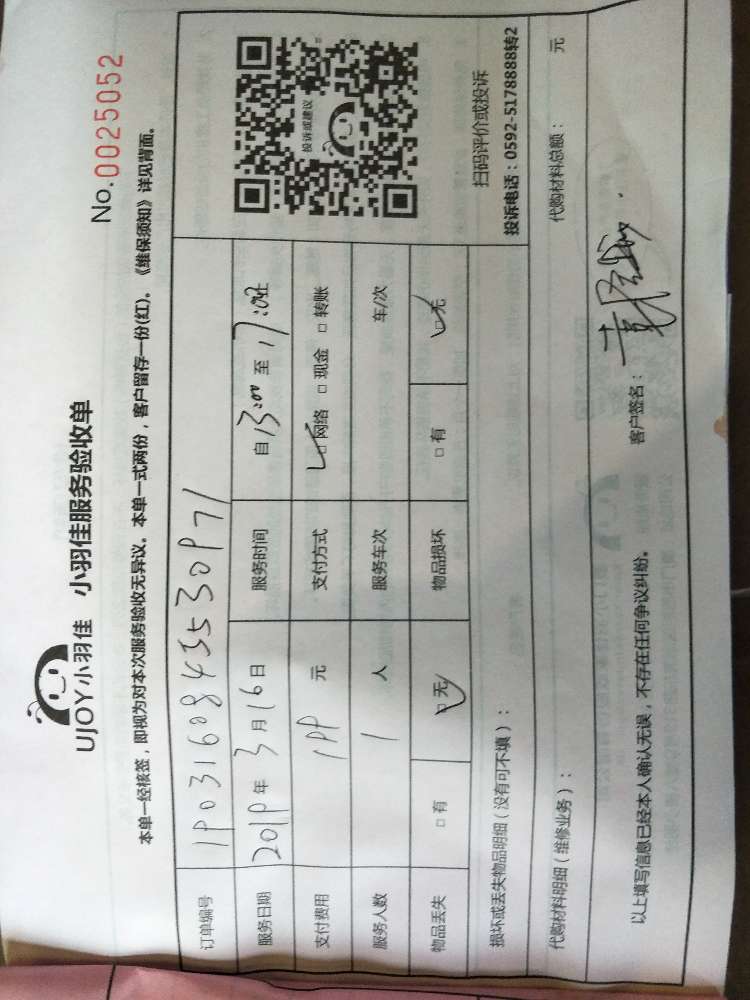 No.0025052
UJOY小羽佳 小羽佳服务验收单
本单一经核签，即视为对本次服务验收无异议。本单一式两份，客户留存一份(红)。《维保须知》详见背面。
订单编号 1903160843530971
服务日期 2019年3月16日 服务时间 自13:00至17:00止
支付费用 199 元 支付方式 ☑网络 □现金 □转账
服务人数 1 人 服务车次 车/次
物品丢失 □有 ☑无 物品损坏 □有 ☑无
投诉或建议
扫码评价或投诉
损坏或丢失物品明细（没有可不填）：
投诉电话：0592-5178888转2
代购材料明细（维修业务）： 代购材料总额： 元
以上填写信息已经本人确认无误，不存在任何争议纠纷。 客户签名：